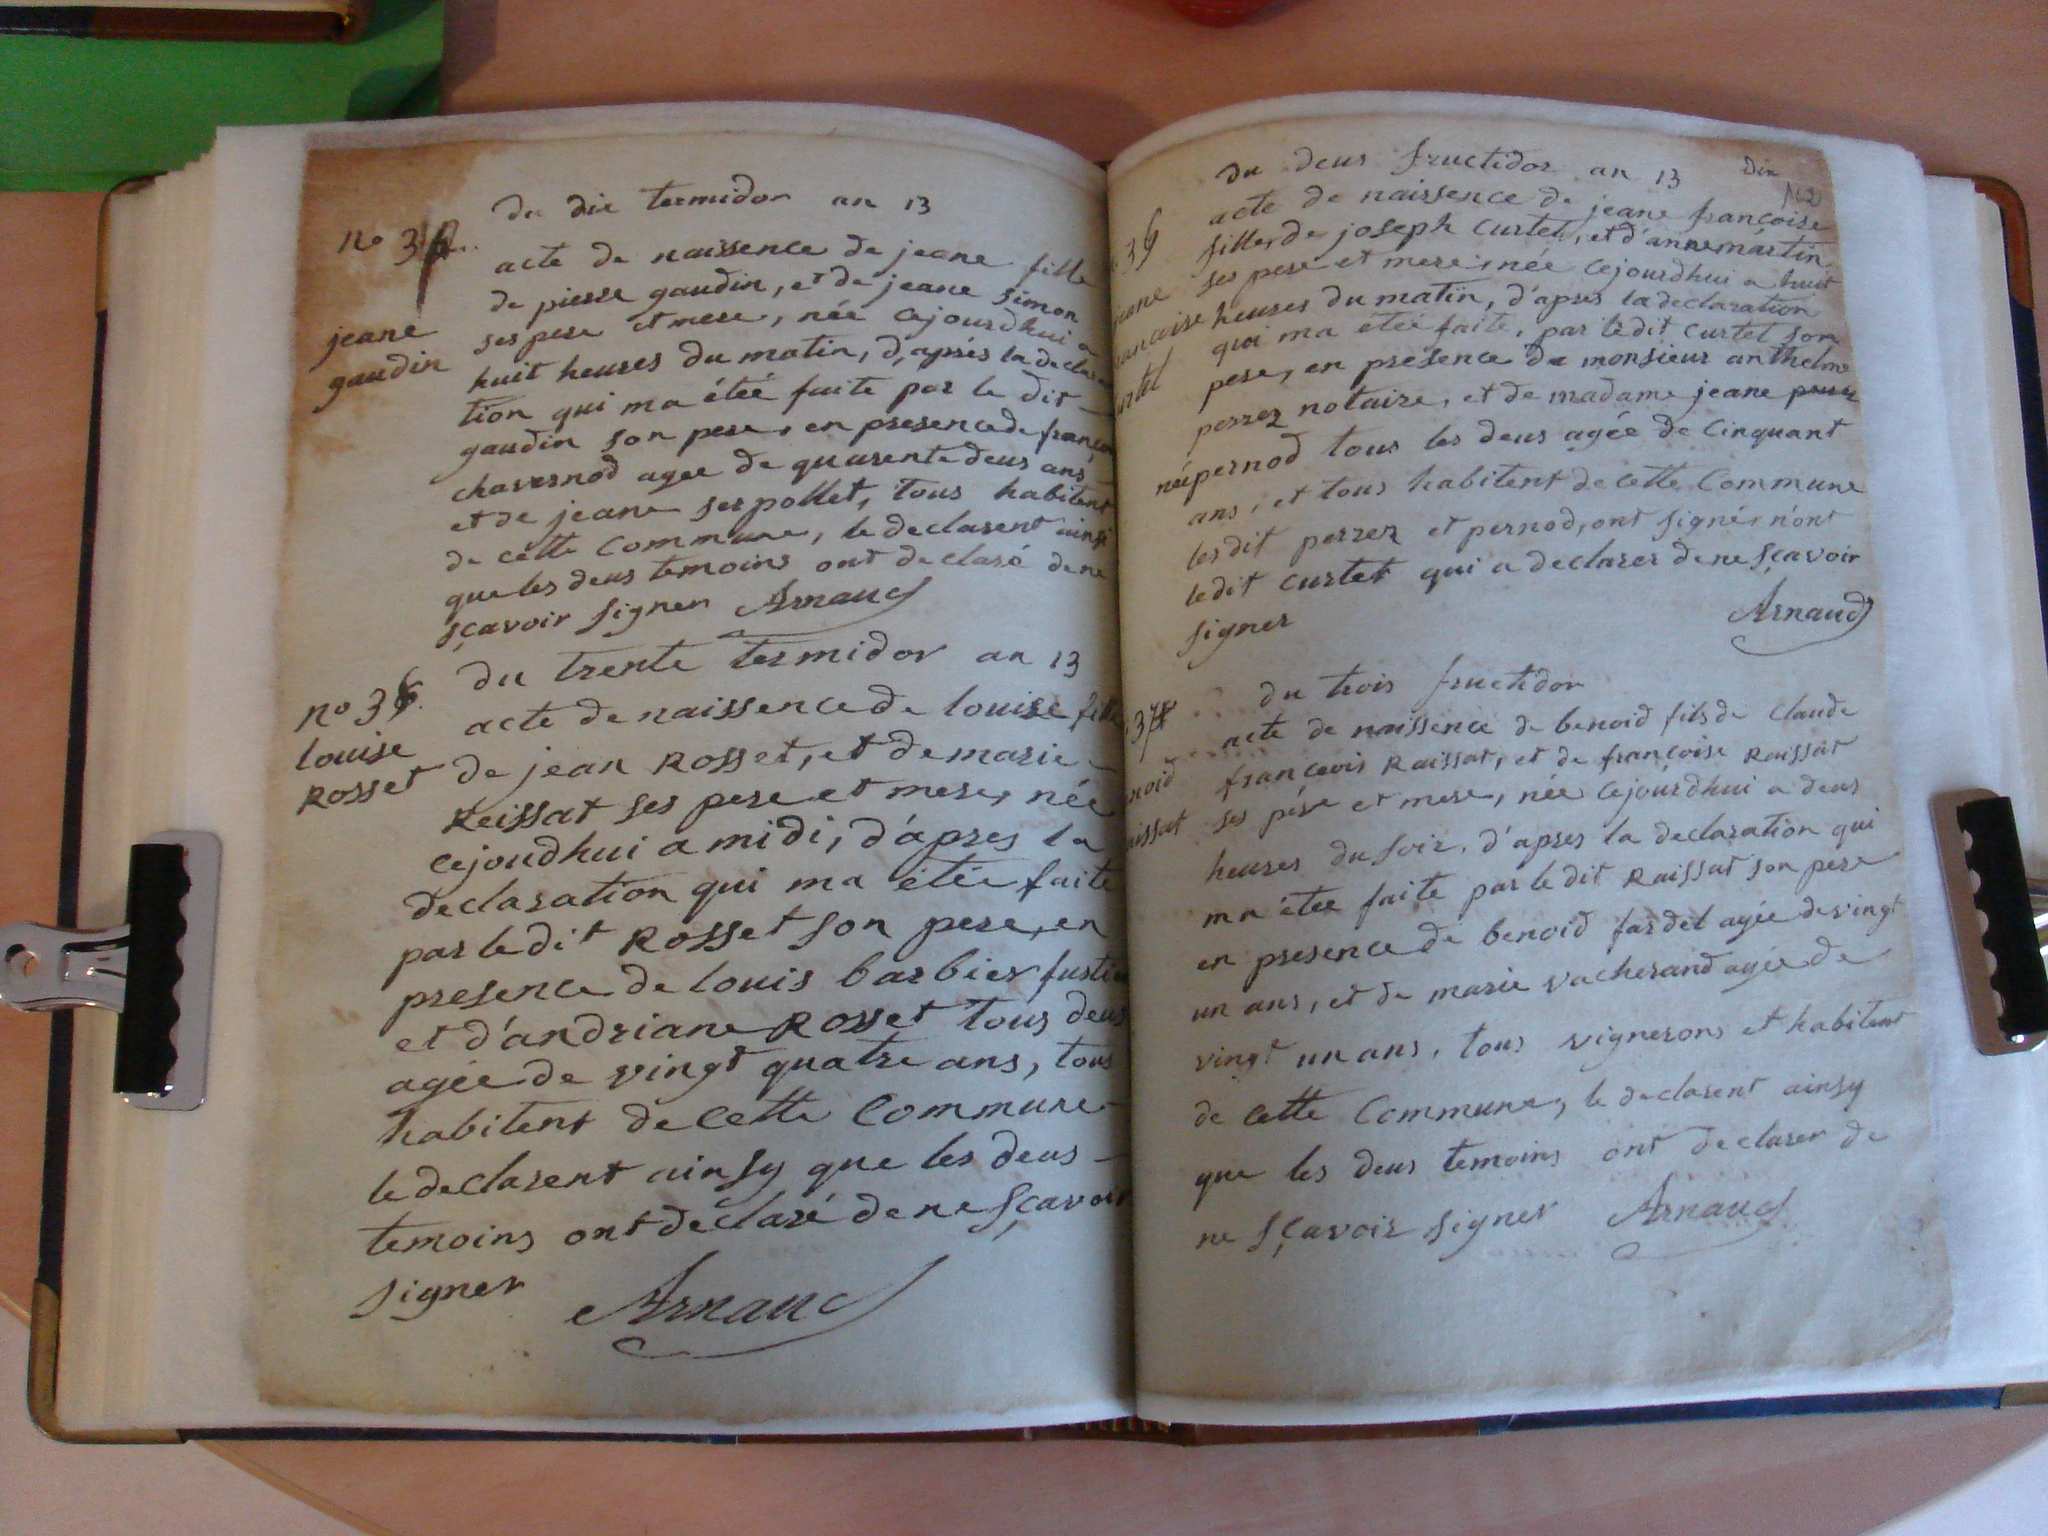 du dix termidor an 13
no 3
acte de naissence de jeane fille
de pierre gaudin, et de jeane simon
jeane
gaudin
ses pere et mere, née cejourdhui a
huit heures du matin, d'aprés la declara
tion qui ma étéé faite par le dit
gaudin son pere, en presence de françois
chavernod agee de quarente deus ans
et de jeane serpollet, tous habitent
de cette Commune, le declarent ainsi
que les deus temoins ont declaré de ne
sçavoir signer Arnaud
du trente termidor an 13
no 36
louise
Rosset
acte de naissence de louise fille
de jean Rosset, et de marie
Reissat ses pere et mere, née
cejoudhui a midi, d'apres la
declaration qui ma étéé faite
par le dit Rosset son pere, en
presence de louis barbier fusti
et d'andriane Rosset tous deus
agée de vingt quatre ans, tous
habitent de cette Commune
le declarent ainsy que les deus
temoins ont declaré de ne sçavoir
signer Arnaud
du deus fructidor an 13
dix
acte de naissence de jeane françoise
fille, de joseph Curtet, et d'anne martin
ses pere et mere, née cejourdhui a huit
jeane
francaise
heures du matin, d'apres la declaration
qui ma étéé faite, par le dit Curtet son
pere, en presence de monsieur anthelme
perrez notaire, et de madame jeane
née pernod tous les deus agée de Cinquant
ans, et tous habitent de cette Commune
les dit perrez et pernod, ont signé, n'ont
le dit Curtet qui a declarer de ne sçavoir
signer Arnaud
du trois fructidor
37
acte de naissence de benoid fils de Claude
françois Raissat, et de françoise Raissat
ses pére et mere, née cejourdhui a deus
heures du soir, d'apres la declaration qui
ma étée faite par le dit Raissat son pere
en presence de benoid fardel agée de vingt
un ans, et de marie vacherand agée de
vingt un ans, tous vignerons et habitent
de cette Commune, le declarent ainsy
que les deus temoins ont declarer de
ne sçavoir signer Arnaud